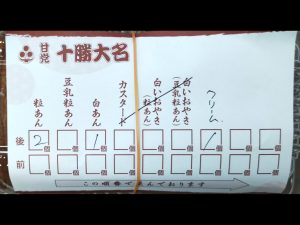 甘党 十勝大名
粒あん
豆乳粒あん
白あん
カスタード
白いおやき
(粒あん)
白いおやき
(豆乳粒あん)
クリーム
後 2個 個 1個 個 個 個 1個 個 個
前 個 個 個 個 個 個 個 個 個
この順番で並んでおります